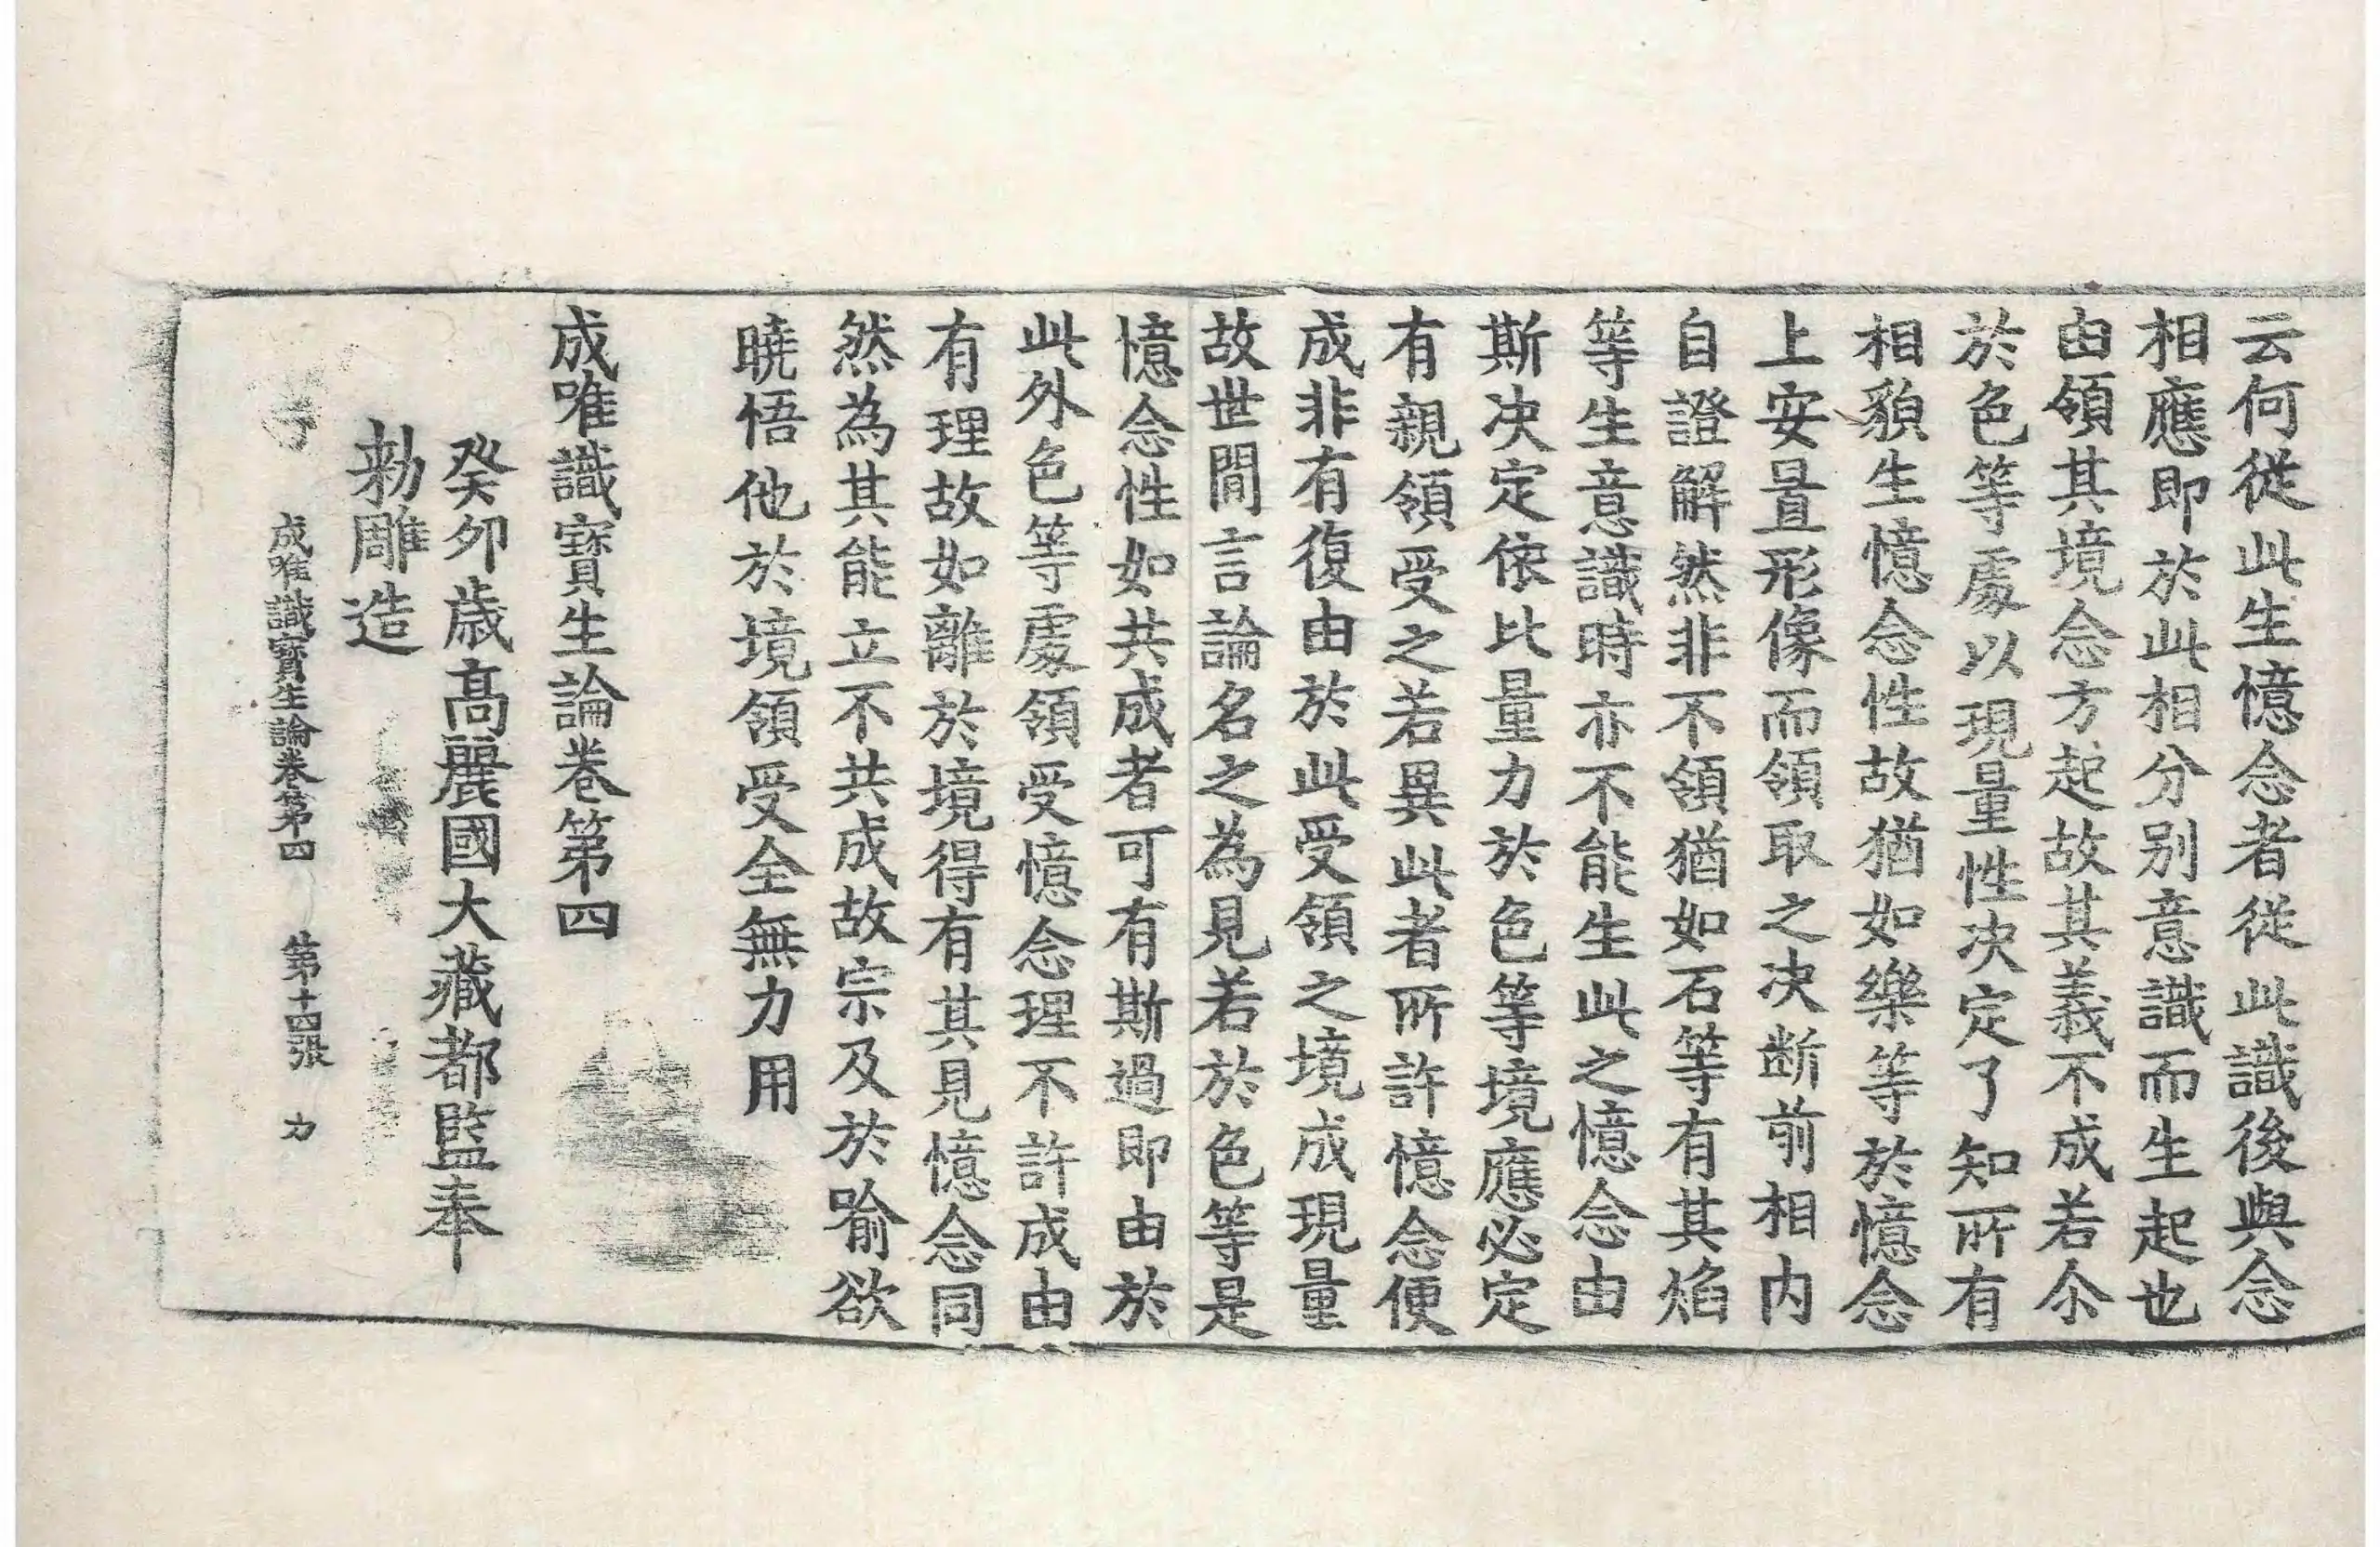 云何從此生憶念者從此識後與念
相應即於此相分别意識而生起也
由領其境念方起故其義不成若尒
於色等處以現量性决定了知所有
相貌生憶念性故猶如樂等於憶念
上安置形像而領取之决断前相内
自證解然非不領猶如石等有其焰
等生意識時亦不能生此之憶念由
斯决定依比量力於色等境應必定
有親領受之若異此者所許憶念便
成非有復由於此受領之境成現量
故世間言論名之為見若於色等是
憶念性如共成者可有斯過即由於
此外色等處領受憶念理不許成由
有理故如離於境得有其見憶念同
然為其能立不共成故宗及於喻欲
曉悟他於境領受全無力用
成唯識寶生論卷第四
癸卯歳髙麗國大藏都監奉
勑雕造
成唯識寶生論卷第四 第十四張 力